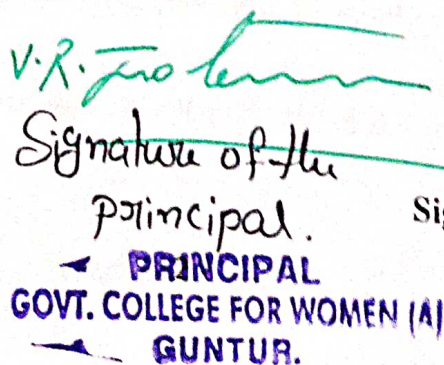 V.R.
Signature of the
principal.
Sig
PRINCIPAL
GOVT. COLLEGE FOR WOMEN (A)
GUNTUR.